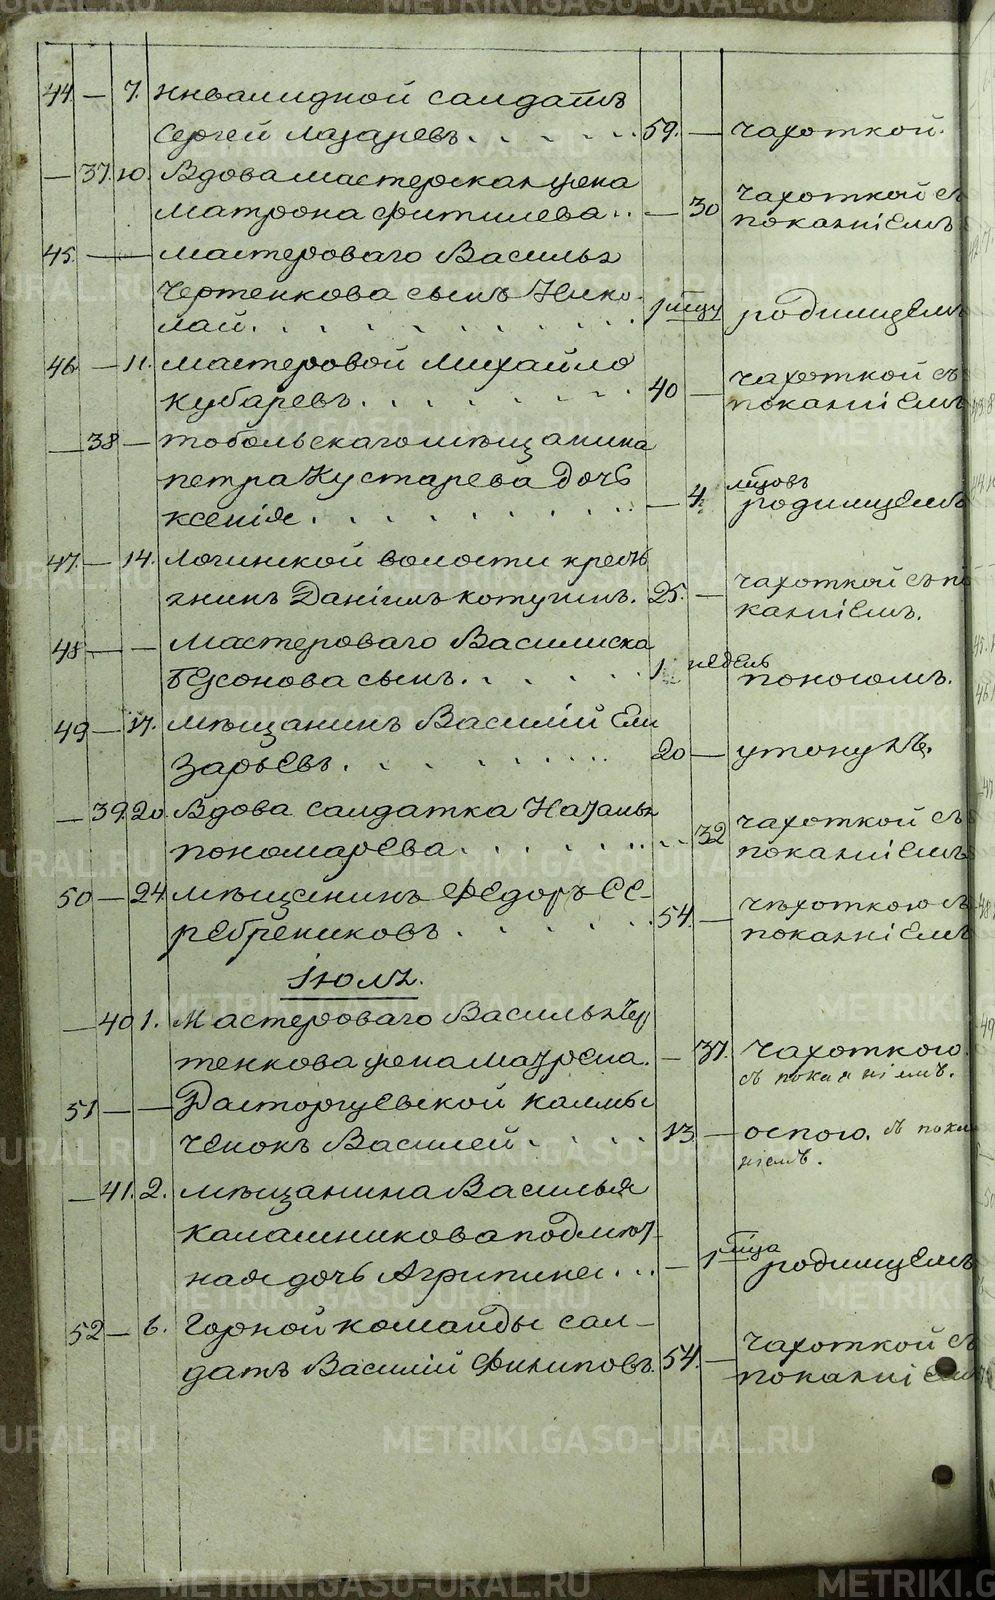 44. — 7. Инвалидной салдатъ
Сергей Лазаревъ. . . . . . 59. — чахоткой.
— 37. 10. Вдова мастерская жена
Матрона Фитилева . . — 30 чахоткой съ
покаянiемъ
45. — — Мастероваго Василья
Чертенкова сынъ Нико-
лай. . . . . . . . . . 1 мцу родимцемъ
46 — 11. Мастеровой Михайло
Кубаревъ. . . . . . . . 40 — чахоткой съ
покаянiемъ
— 38 — Тобольскаго мѣщанина
Петра Кустарева дочь
Ксенiя. . . . . . . . . — 4. мцовъ родимцемъ
47. — 14. Логинской волости кресть
янинъ Данiилъ Котугинъ. 25. — чахоткой съ по
каянiемъ.
48 — — Мастероваго Василиска
Бежонова сынъ. . . . . . 1 недель поносомъ.
49 — 17. Мѣщанинъ Василiй Ели
зарьевъ. . . . . . . . . 20 — утонулъ.
— 39. 20. Вдова салдатка Наталья
Пономарева. . . . . . . . — 32 чахоткой съ
покаянiемъ
50 — 24 Мѣщенинъ Федоръ Се-
ребрениковъ . . . . . . 54. — чахоткою съ
покаянiемъ
Iюль.
— 40 1. Мастероваго Василья Чер
тенкова жена Маурена. — 37. чахоткою.
съ покаянiемъ.
51 — — Расторгуевской калмы
ченокъ Василей . . . . . 13 — оспою. съ покая
нiемъ.
— 41. 2. Мѣщанина Василья
Калашникова подмет-
ная дочь Агрипина . . . — 1 мца родимцемъ
52 — 6. Горной команды сал-
датъ Василiй Филиповъ. 54. — чахоткой съ
покаянiемъ
METRIKI.GASO-URAL.RU